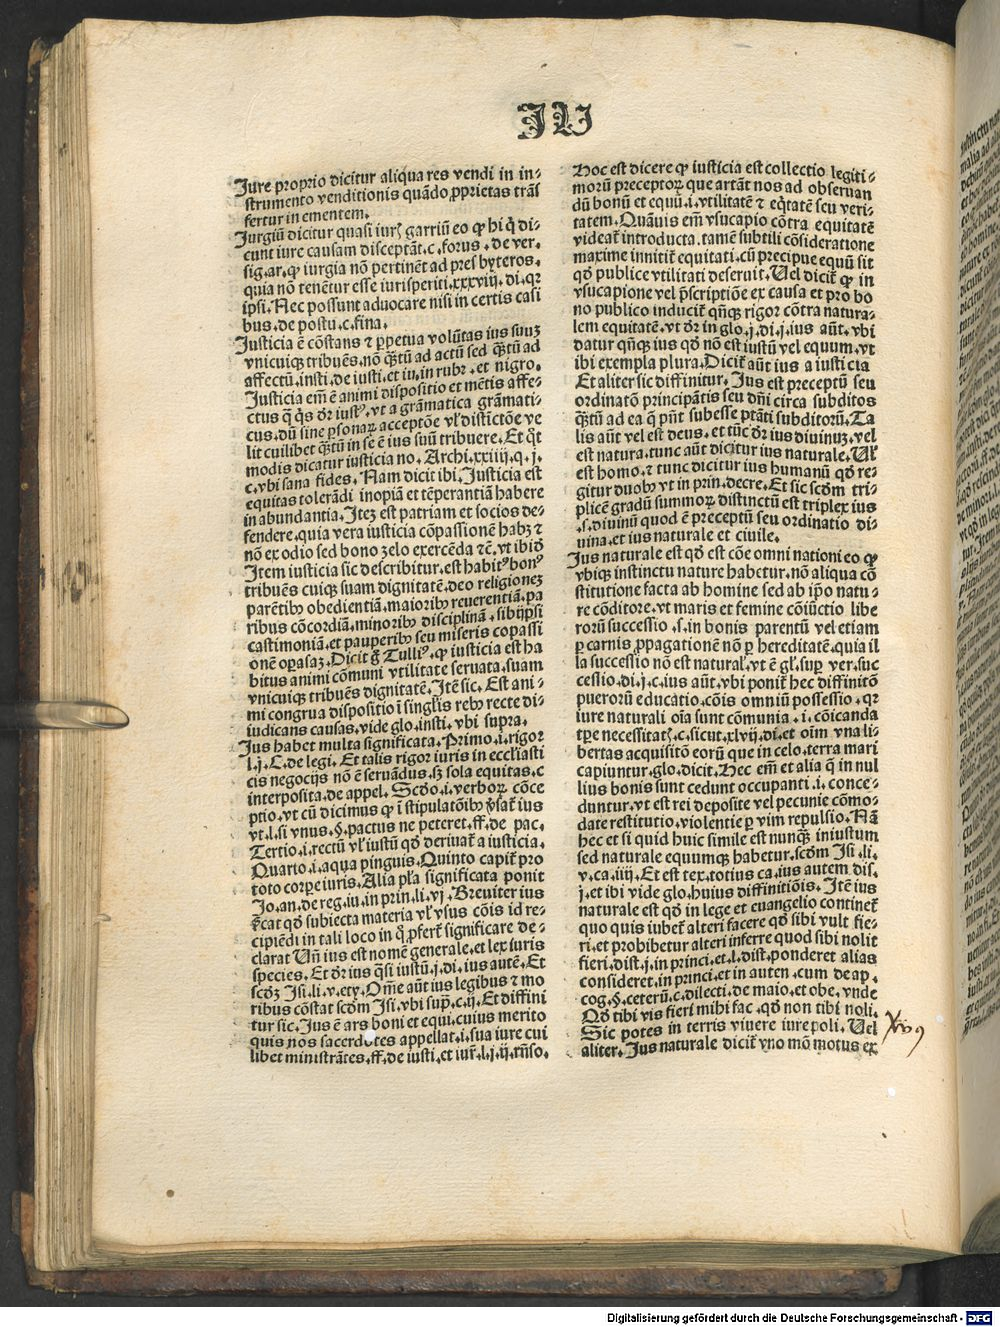 IU
Jure proprio dicitur aliqua res vendi in in⸗
strumento venditionis quādo ꝓprietas trās
fertur in ementem.
Jurgiū dicitur quasi iurꝭ garriū eo ꝙ hi q̇ di⸗
cunt iure causam disceptāt.c.forus.de ver.
sig.ar.ꝙ iurgia nō pertinēt ad presbyteros.
quia nō tenētur esse iurisperiti.xxxviij.di.qr
ipsi. Nec possunt aduocare nisi in certis casi
bus.de postu.c.fina.
Justicia ē cōstans ⁊ ꝑpetua volūtas ius suuꝫ
vnicuiqꝫ tribuēs.nō q̄ꝫtū ad actū sed q̄ꝫtū ad
affectū.insti.de iusti.et iu.in rubr̄.et nigro.
Justicia em̄ ē animi dispositio et mētis affe⸗
ctus q̄ q̇s dr̄ iustꝰ.vt a grāmatica grāmati⸗
cus.dū sine ꝑsonaꝝ acceptōe vl̓ distictōe ve
lit cuilibet q̄ꝫtū in se ē ius suū tribuere. Et q̇t
modis dicatur iusticia no. Archi.xxiiij.q.j.
c.vbi sana fides. Nam dicit ibi. Justicia est
equitas tolerādi inopiā et tēperantiā habere
in abundantia. Iteꝫ est patriam et socios de⸗
fendere.quia vera iusticia cōpassionē habꝫ ⁊
nō ex odio sed bono zelo exercēda ⁊c̄.vt ibid̄
Item iusticia sic describitur.est habitꝰ bonꝰ
tribuēs cuiqꝫ suam dignitatē.deo religioneꝫ
parētibꝫ obedientiā.maioribꝫ reuerentiā.pa
ribus cōcordiā.minoribꝫ disciplinā.sibijpsi
castimoniā.et pauperibꝫ seu miseris copassi
onē oꝑasaꝫ. Dicit g̊ Tulliꝰ.ꝙ iusticia est ha
bitus animi cōmuni vtilitate seruata.suam
vnicuiqꝫ tribuēs dignitatē. Itē sic. Est ani⸗
mi congrua dispositio ī singl̓is rebꝫ recte di⸗
iudicans causas.vide glo.insti.vbi supra.
Jus habet multa significata. Primo.i.rigor
l.j.C.de legi. Et talis rigor iuris in eccl̓iasti
cis negocijs nō ē seruādus.sꝫ sola equitas.c
interposita.de appel. Scd̓o.i.verboꝝ cōce
ptio.vt cū dicimus ꝙ ī stipulatōibꝫ v̓sat̄ ius
vt.l.si vnus.§.pactus ne peteret.ff.de pac.
Tertio.i.rectū vl̓ iustū qd̓ deriuat̄ a iusticia.
Quarto.i.aqua pinguis. Quinto capit̄ pro
toto corꝑe iuris. Alia pl̓a significata ponit
Jo.an.de reg.iu.in prin.li.vj. Breuiter ius
v̓cat qd̓ subiecta materia vl̓ vsus cōis id re⸗
cipiēdi in tali loco in q̊ ꝓfert̄ significare de⸗
clarat Un̄ ius est nomē generale.et lex iuris
species. Et dr̄ ius q̄si iustū.j.di.ius autē. Et
scd̓ꝫ Isi.li.v.ety. Om̄e aūt ius legibus ⁊ mo
ribus cōstat scd̓m Isi.vbi sup̄.c.ij. Et diffini
tur sic. Jus ē ars boni et equi.cuius merito
quis nos sacerdotes appellat.i.sua iure cui
libet ministrātes.ff.de iusti.et iur̄.l.j.ij.rn̄so.
Hoc est dicere ꝙ iusticia est collectio legiti⸗
morū preceptoꝝ que artāt nos ad obseruan
dū bonū et equū.i.vtilitatē ⁊ eq̇tatē seu veri⸗
tatem. Quāuis em̄ vsucapio cōtra equitatē
videat̄ introducta.tamē subtili cōsideratione
maxime innitit̄ equitati.cū precipue equū sit
qd̓ publice vtilitati deseruit. Uel dicit̄ ꝙ in
vsucapione vel p̄scriptiōe ex causa et pro bo
no publico inducit̄ qn̄qꝫ rigor cōtra natura⸗
lem equitatē.vt dr̄ in glo.j.di.j.ius aūt.vbi
datur qn̄qꝫ ius qd̓ nō est iustū vel equum.vt
ibi exempla plura. Dicit̄ aūt ius a iusticia
Et aliter sic diffinitur. Jus est preceptū seu
ordinatō principātis seu dn̄i circa subditos
q̄ꝫtū ad ea q̄ pn̄t subesse ptāti subditorū. Ta
lis aūt vel est deus.et tūc dr̄ ius diuinuꝫ.vel
est natura.tunc aūt dicitur ius naturale. Ul̓
est homo.⁊ tunc dicitur ius humanū qd̓ re⸗
gitur duobꝫ vt in prin.decre. Et sic scd̓m tri⸗
plicē gradū summoꝝ distinctū est triplex ius
.s.diuinū quod ē preceptū seu ordinatio di⸗
uina.et ius naturale et ciuile.
Jus naturale est qd̓ est cōe omni nationi eo ꝙ
vbiqꝫ instinctu nature habetur.nō aliqua cō
stitutione facta ab homine sed ab ip̄o natu⸗
re cōditore.vt maris et femine cōiūctio libe
rorū successio.s.in bonis parentū vel etiam
ꝑ carnis ꝓpagationē nō ꝑ hereditatē.quia il
la successio nō est natural̓.vt ē gl̓.sup̄ ver.suc
cessio.di.j.c.ius aūt.vbi ponit̄ hec diffinitō
puerorū educatio.cōis omniū possessio.qr
iure naturali oīa sunt cōmunia.i.cōicanda
tꝑe necessitatꝭ.c.sicut.xlvij.di.et oīm vna li⸗
bertas acquisitō eorū que in celo.terra mari
capiuntur.glo.dicit. Hec em̄ et alia q̄ in nul
lius bonis sunt cedunt occupanti.i.conce⸗
duntur.vt est rei deposite vel pecunie cōmo⸗
date restitutio.violentie ꝑ vim repulsio. Nā
hec et si quid huic simile est nunqꝫ iniustum
sed naturale equumqꝫ habetur.scd̓m Isi.li.
v.ca.iiij. Et est tex.totius ca.ius autem dis.
j.et ibi vide glo.huius diffinitiōis. Itē ius
naturale est qd̓ in lege et euangelio continet̄
quo quis iubet̄ alteri facere qd̓ sibi vult fie⸗
ri.et prohibetur alteri inferre quod sibi nolit
fieri.dist.j.in princi.et.l.dist.ponderet alias
consideret.in princi.et in auten.cum de ap.
cog.§.ceterū.c.dilecti.de maio.et obe.vnde
Qd̓ tibi vis fieri mihi fac.qd̓ non tibi noli.
Sic potes in terris viuere iure poli. Uel
aliter. Jus naturale dicit̄ vno mō motus ex
Digitalisierung gefördert durch die Deutsche Forschungsgemeinschaft - DFG